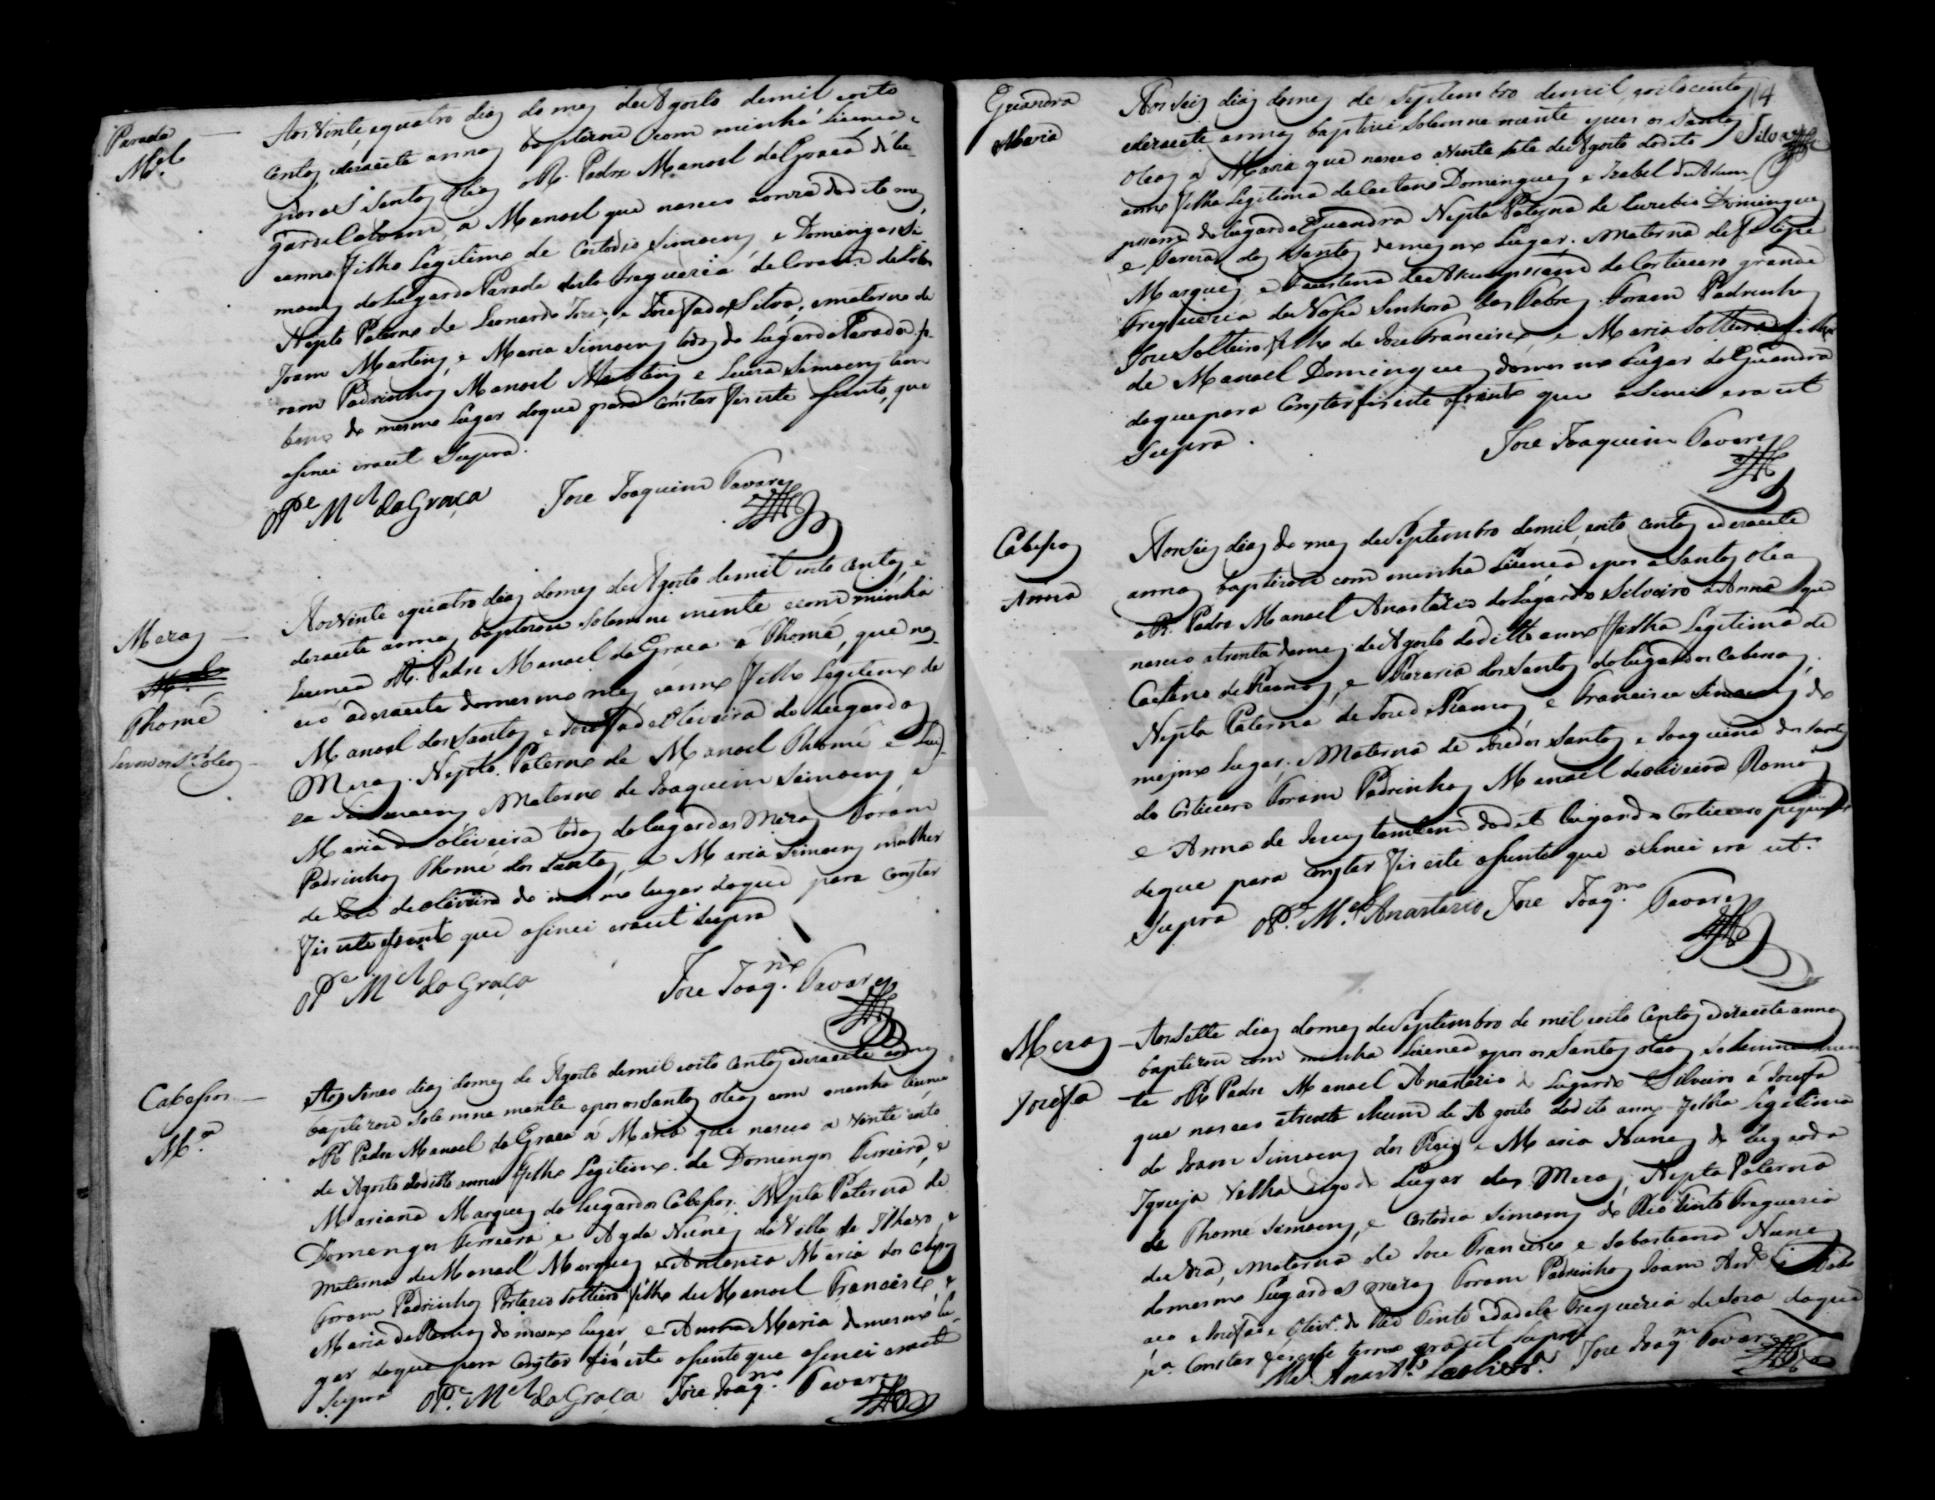 Parada
M.el
Aos Vinte equatro dias do mez de Agosto demil oito
centos, edezacete annos baptizou com minha Licenca e
pos os Santos Oleos o R. Padre Manoel da Graca do lu-
gar de Calvam, a Manoel que nasceo aonze do dito mez
eanno Filho Legitimo de Custodio Simoens, e Domingas Si-
moens do Lugar da Parada desta Freguezia de Covam do Lobo
Nepto Paterno de Leonardo Joze, e Josefa da Silva, ematerno de
Joam Martins, e Maria Simoens todos do Lugar da Parada fo-
ram Padrinhos Manoel Martins e Luiza Simoens tam
bem do mesmo Lugar doque para constar fis este asento, que
asinei eraut Supra.
O P.e M.el da Graça Joze Joaquim Tavares
Meras
M.el
Thomé
Levou os S.tos oleos
Aos Vinte equatro dias domes de Agosto demil oito centos, e
dezacete annos baptizou Solemne mente ecom minha
Licenca o R. Padre Manoel da Graca a Thomé, que nas-
ceo adezacete domesmo mes eanno Filho Legitimo de
Manoel dos Santos e Josefa de Oliveira do Lugar das
Meras. Nepto Paterno de Manoel Thomé e Lui-
za Simoens Materno de Joaquim Simoens e
Maria de Oliveira todos do lugar das Meras Foram
Padrinhos Thomé dos Santos, e Maria Simoens mulher
de Joze de Oliveira do mesmo lugar doque para constar
fis este asento que asinei eraut Supra
O P.e M.el da Graça Joze Joaq.m Tavares
Cabeços
M.a
Aos Sinco dias domes de Agosto demil oito centos edezacete annos
baptizou Solemne mente epos os Santos Oleos com minha licenca
o R. Padre Manoel da Graca a Maria que nasceo a vinte oito
de Agosto dodito anno Filha Legitima de Domingos Ferreira, e
Mariana Marques do Lugar dos Cabeços. Nepta Paterna de
Domingos Ferreira e Agda Nunes da Villa de Ilhavo, e
Materna de Manoel Marques e Antonia Maria dos Cabeços
Foram Padrinhos solteiro filho de Manoel Francisco, e
Maria de Ramos do mesmo lugar, e Anna Maria domesmo lu-
gar doque para constar fis este asento que asinei eraut
Supra O P.e M.el da Graça Joze Joaq.m Tavares
14
Silva
Guandra
Maria
Aos Seis dias domes de Septembro demil, oitocentos
edezacete annos baptizei Solemne mente epus os Santos
Oleos a Maria que nasceo avinte sete de Agosto dodito
anno Filha Legitima de Caetano Domingues e Izabel
do lugar da Guandra Nepta Paterna de Euzebio Domingues
e Tereza dos Santos do mesmo Lugar. Materna de Felipe
Marques e Faustina da do Corticeiro grande
Freguezia de Nossa Senhora das Febres. Foram Padrinhos
Joze Solteiro filho de Joze Francisco e Maria Solteira filha
de Manoel Domingues domesmo Lugar da Guandra
doque para constar fis este asento que asinei era ut
Supra. Joze Joaquim Tavares
Cabeços
Anna
Aos Seis dias do mes de Septembro demil, oito centos edezacete
annos baptizou com minha Licenca epos os Santos Oleos
o R. Padre Manoel Anastazio do Lugar do Silveiro a Anna que
nasceo atrinta domes de Agosto do ditto anno Filha Legitima de
Caetano de Ramos, e Rozaria dos Santos do lugar dos Cabecos,
Nepta Paterna de Joze d Ramos e Francisca Simoens do
mesmo Lugar. Materna de Joze dos Santos e Joaquina dos Santos
do Corticeiro Foram Padrinhos Manoel de Oliveira Romão
e Anna de Jezus tambem do dito lugar do Corticeiro pequeno
deque para constar fis este asento que asinei era ut.
Supra O P.e M.el Anastazio Joze Joaq.m Tavares
Meras
Josefa
Aos Sette dias domes de Septembro de mil oito centos edezacete annos
baptizou com minha Licenca epos os Santos Oleos solemnemen
te o R Padre Manoel Anastazio do Lugar do Silveiro a Josefa
que nasceo atrinta ehum de Agosto dodito anno Filha Legitima
de Joam Simoens dos Reis e Maria Nunes do lugar da
Igreja Velha digo do Lugar das Meras, Nepta Paterna
de Thome Simoens, e Custodia Simoens do Rio Tinto Freguezia
de Materna de Joze Francisco e Sabastiana Nunes
domesmo Lugar das Meras Foram Padrinhos Joam
e Josefa de Oliv.ra do Rio Tinto Freguezia de Soza doque
p.a Constar fis este termo eraut supra Joze Joaq.m Tavares